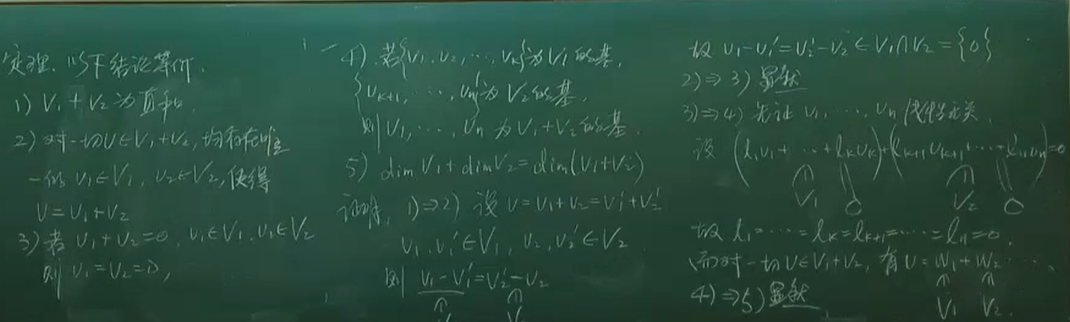 定理. 以下结论等价.
1) V₁+V₂为直和.
2) 对一切v∈V₁+V₂, 均存在唯
一的v₁∈V₁, v₂∈V₂, 使得
v=v₁+v₂
3) 若v₁+v₂=0, v₁∈V₁, v₂∈V₂
则v₁=v₂=0,
4) 若{v₁, v₂, ..., vₖ}为V₁的基,
{vₖ₊₁, ..., vₙ}为V₂的基,
则v₁, ..., vₙ为V₁+V₂的基.
5) dimV₁+dimV₂=dim(V₁+V₂)
证明. 1)⇒2) 设v=v₁+v₂=v₁'+v₂'
v₁, v₁'∈V₁, v₂, v₂'∈V₂
则 v₁-v₁'=v₂'-v₂
故 v₁-v₁'=v₂'-v₂∈V₁∩V₂={0}
2)⇒3) 显然
3)⇒4) 先证v₁, ..., vₙ线性无关.
设 (l₁v₁+...+lₖvₖ)+(lₖ₊₁vₖ₊₁+...+lₙvₙ)=0
V₁ 0 V₂ 0
故 l₁=...=lₖ=lₖ₊₁=...=lₙ=0.
而对一切v∈V₁+V₂, 有v=w₁+w₂...
4)⇒5) 显然 V₁ V₂.